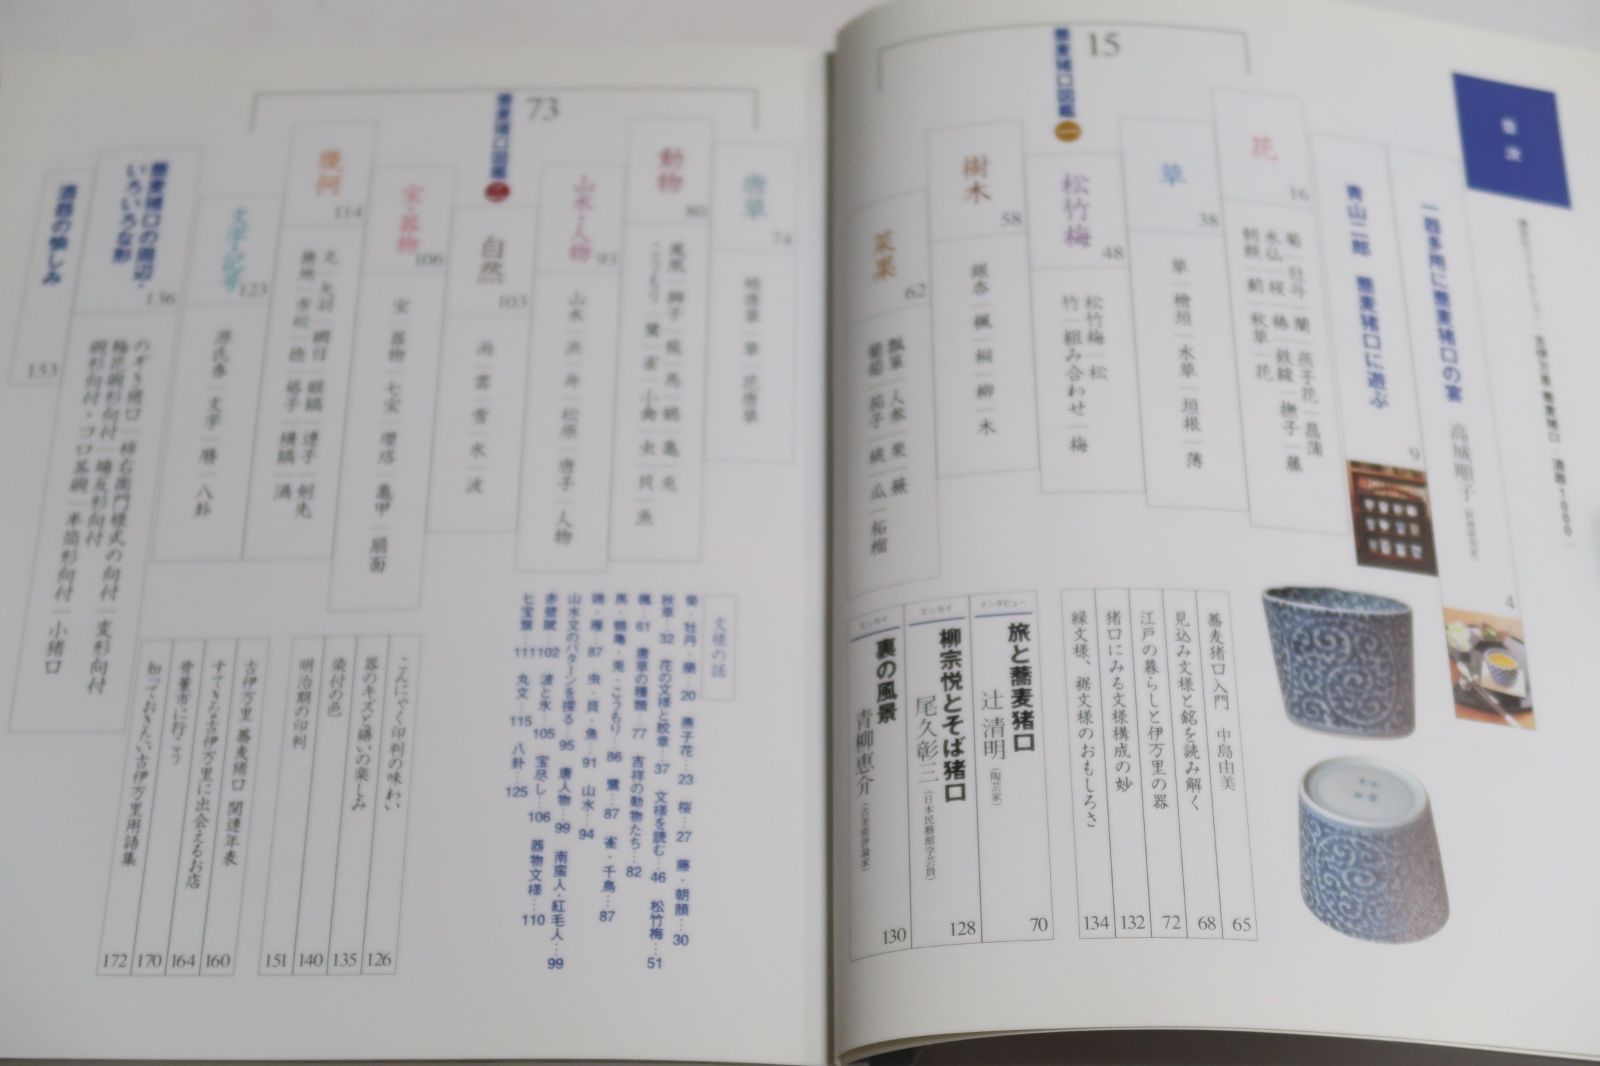 目次
古伊万里 蕎麦猪口・酒器1000
一器多用に蕎麦猪口の宴
高城順子
4
青山二郎 蕎麦猪口に遊ぶ
9
蕎麦猪口図鑑 一
15
花
16
菊|牡丹|蘭|燕子花|菖蒲
水仙|桜|椿|鉄線|撫子|藤
草
38
草|檜垣|水草|垣根|薄
松竹梅
48
松竹梅|松
竹|組み合わせ|梅
樹木
58
銀杏|楓|桐|柳|木
菜果
62
瓢箪|人参|茱|蕪
葡萄|茄子|桃|瓜|柘榴
蕎麦猪口入門 中島由美
65
見込み文様と銘を読み解く
68
江戸の暮らしと伊万里の器
72
猪口にみる文様構成の妙
132
縁文様、裾文様のおもしろさ
134
インタビュー
旅と蕎麦猪口
辻 清明（陶芸家）
70
エッセイ
柳宗悦とそば猪口
尾久彰三（日本民藝館学芸員）
128
エッセイ
裏の風景
青柳恵介（古美術評論家）
130
蕎麦猪口図鑑 二
73
唐草
74
蛸唐草|草|花唐草
動物
80
鳳凰|獅子|龍|馬|鶴|亀|兎
こうもり|鷺|雀|小禽|虫|貝|魚
山水・人物
93
山水|浜|舟|松原|唐子|人物
自然
103
雨|雲|雪|氷|波
宝・器物
106
宝|器物|七宝|瓔珞|亀甲|扇面
幾何
114
文字・記号
123
源氏香|文字|暦|八卦
蕎麦猪口の周辺・
いろいろな形
136
のぞき猪口|柿右衛門様式の向付|変形向付
輪花碗形向付|端反形向付
碗形向付・コロ茶碗|半筒形向付|小猪口
酒器の愉しみ
153
文様の話
菊・牡丹・蘭…20 燕子花…23 桜…27 藤・朝顔…30
秋草…32 花の文様と紋章…37 文様を読む…46 松竹梅…51
楓…61 唐草の種類…77 吉祥の動物たち…82
馬・鶴亀・兎・こうもり…86 鷺…87 雀・千鳥…87
鶏・雁…87 虫・貝・魚…91 山水…94
山水文のパターンを探る…95 唐人物…99 南蛮人・紅毛人…99
赤壁賦…102 波と氷…105 宝尽し…106 器物文様…110
七宝繋…111 丸文…115 八卦…125
こんにゃく印判の味わい
126
器のキズと繕いの楽しみ
135
染付の色
140
明治期の印判
151
古伊万里 蕎麦猪口 関連年表
160
すてきな古伊万里に出会えるお店
164
骨董市に行こう
170
知っておきたい古伊万里用語集
172